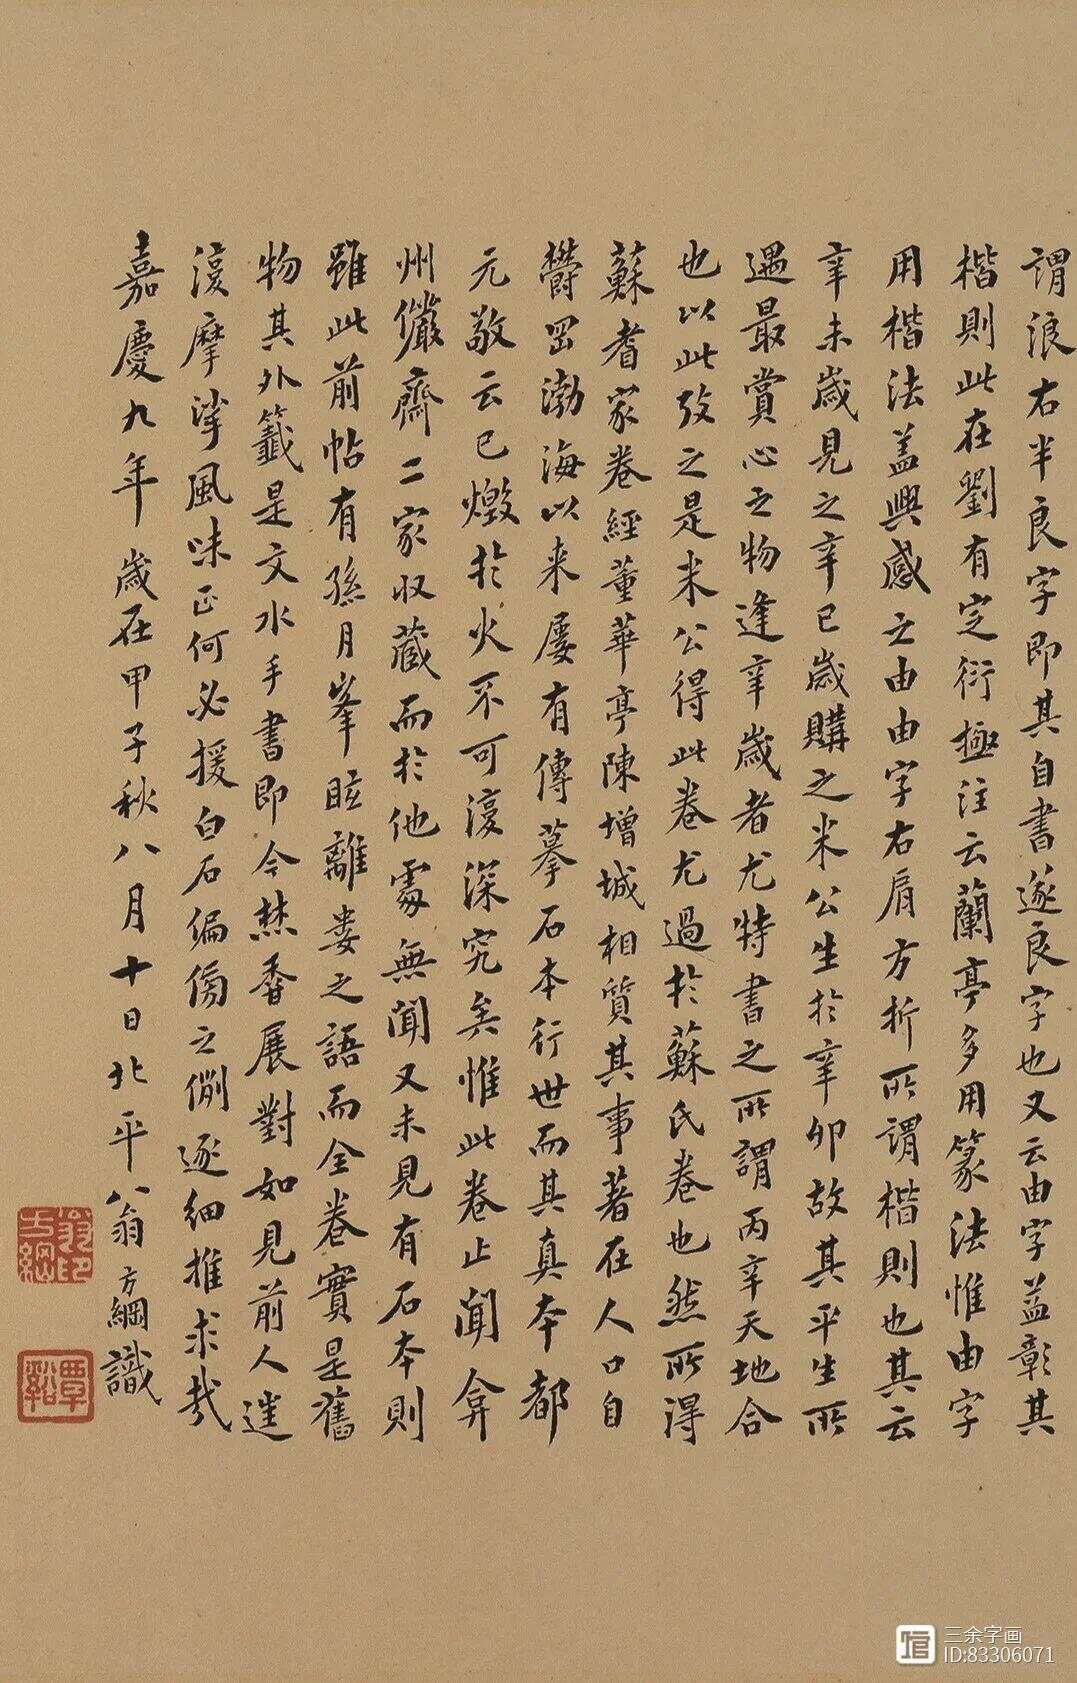 謂浪右半良字即其自書遂良字也又云由字益彰其
楷則此在劉有定衍極注云蘭亭多用篆法惟由字
用楷法蓋興感之由由字右肩方折所謂楷則也其云
辛未歲見之辛巳歲購之米公生於辛卯故其平生所
遇最賞心之物逢辛歲者尤特書之所謂丙辛天地合
也以此攷之是米公得此卷尤過於蘇氏卷也然所得
蘇耆家卷經董華亭陳增城相質其事著在人口自
鬱岡渤海以来屢有傳摹石本行世而其真本都
元敬云已燬於火不可復深究矣惟此卷止聞弇
州儼齋二家收藏而於他處無聞又未見有石本則
雖此前帖有孫月峯眩離婁之語而全卷實是舊
物其外籤是文水手書即今焚香展對如見前人遝
復摩挲風味正何必援白石偏傍之例逐細推求哉
嘉慶九年歲在甲子秋八月十日北平八翁方綱識
翁方綱印
覃谿
三余字画
ID:83306071